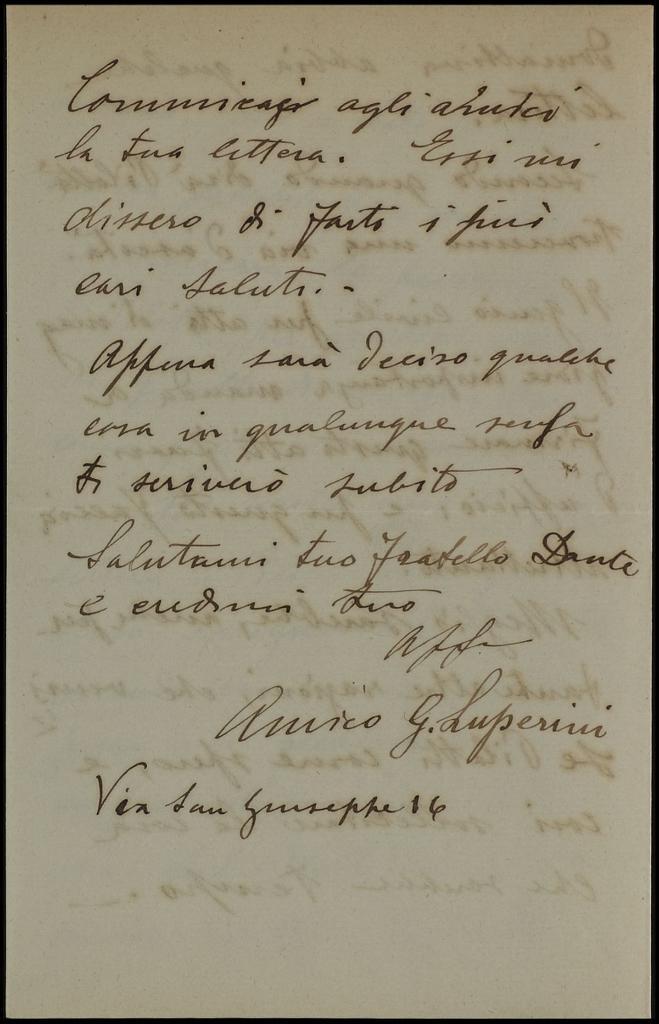 Communicai agli amici
la tua lettera. Essi mi
dissero di farti i più
cari saluti. -
Appena sarà deciso qualche
cosa in qualunque senso
ti scriverò subito
Salutami tuo fratello Dante
e credimi tuo
Aff
Amico G. Luperini
Via San Giuseppe 16